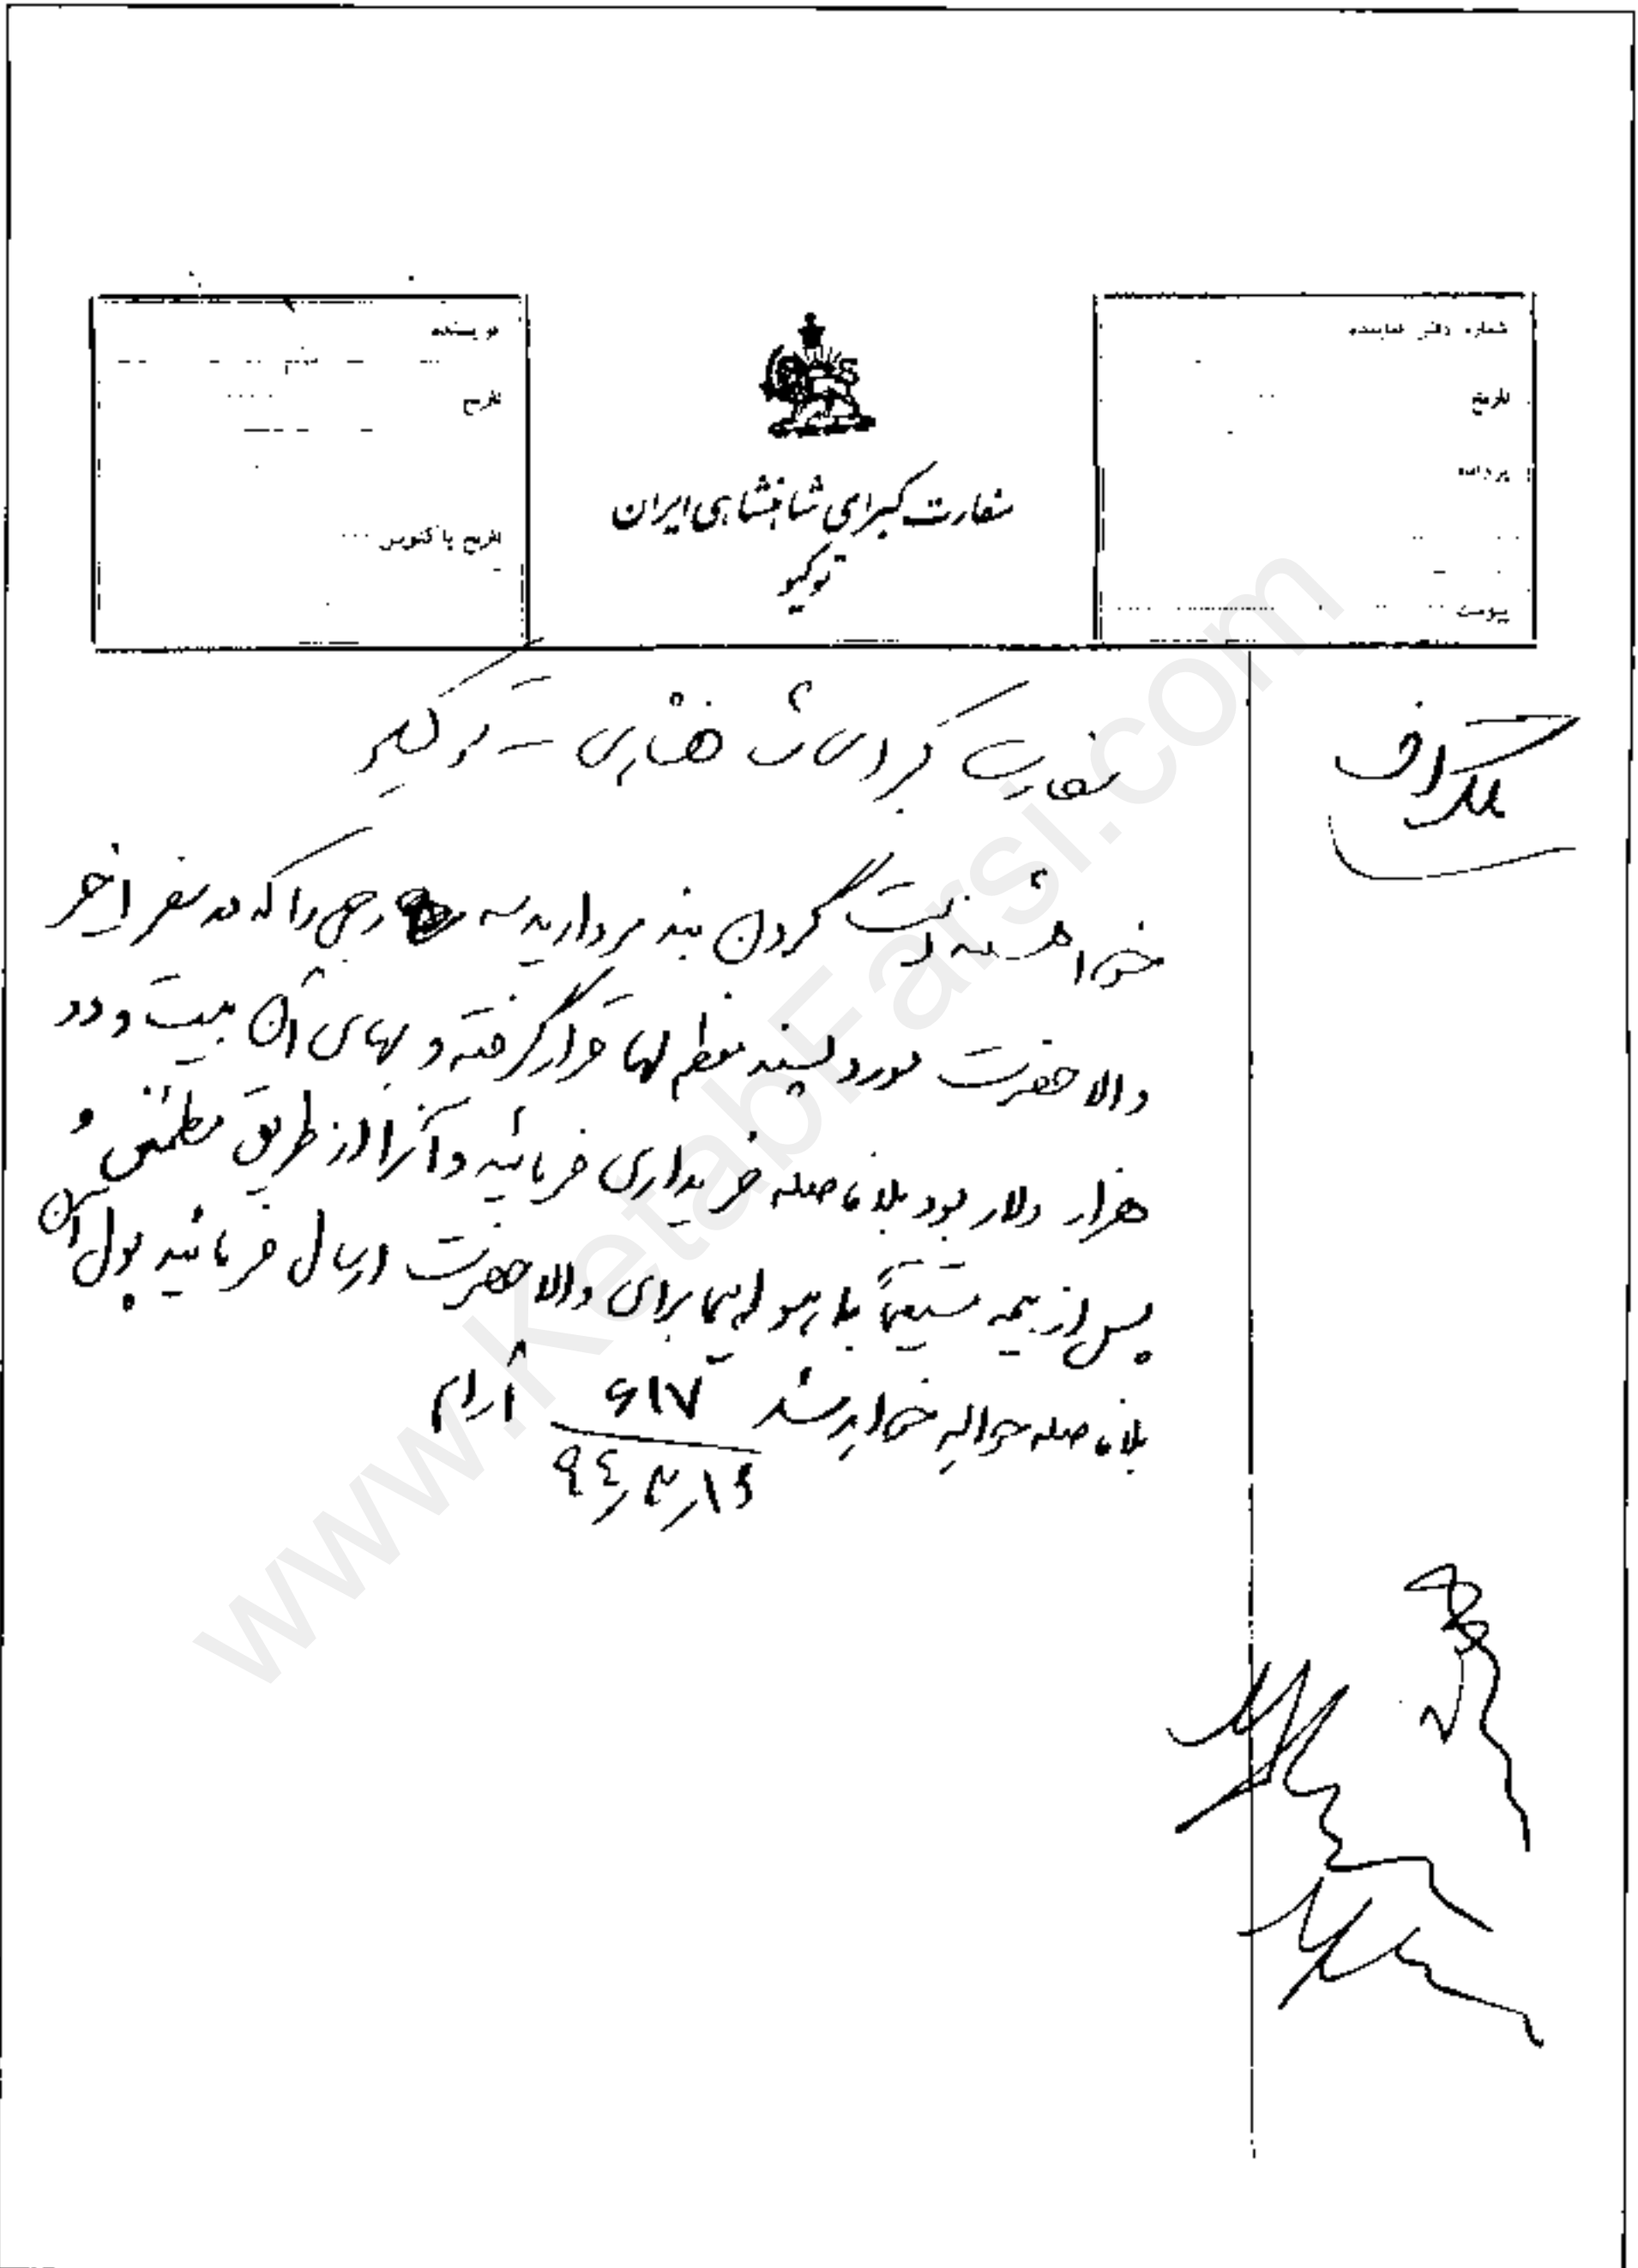 شماره دفتر نماینده
تاریخ
پرونده
پیوست
سفارت کبرای شاهنشاهی ایران
توکیو
نویسنده
تاریخ
تاریخ پاکنویس
تلگراف
سفارت کبرای شاهنشاهی - توکیو
خواهشمند است گردن بند مرواریدسه رجی را که در سفر اخیر
والاحضرت مورد پسند معظم لها قرار گرفته و بهای آن بیست و دو
هزار دلار بود بلافاصله خریداری فرمائید و آنرا از طریق مطمئن و
پس از بیمه مستقیماً با هواپیما برای والاحضرت ارسال فرمائید پول آن
بلافاصله حواله خواهد شد ۶۱۷ آرام
۴۴
www.KetabFarsi.com